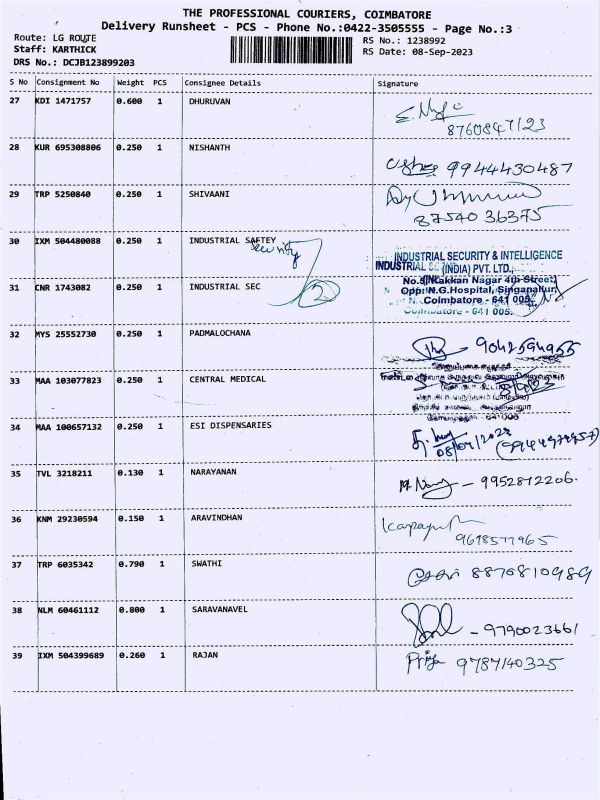 THE PROFESSIONAL COURIERS, COIMBATORE
Delivery Runsheet - PCS - Phone No.:0422-3505555 - Page No.:3
Route: LG ROUTE
RS No.: 1238992
Staff: KARTHICK
RS Date: 08-Sep-2023
DRS No.: DCJB123899203
S No Consignment No Weight PCS Consignee Details Signature
27 KDI 1471757 0.600 1 DHURUVAN
8760847123
28 KUR 695308806 0.250 1 NISHANTH
9944430487
29 TRP 5250840 0.250 1 SHIVAANI
87540 36375
30 IXM 504480088 0.250 1 INDUSTRIAL SAFTEY
security
INDUSTRIAL SECURITY & INTELLIGENCE
(INDIA) PVT. LTD.,
31 CNR 1743082 0.250 1 INDUSTRIAL SEC
2
Nakkan Nagar 4th Street,
Opp: N.G.Hospital, Singanallur,
Coimbatore - 641 005.
32 MYS 25552730 0.250 1 PADMALOCHANA
33 MAA 103077823 0.250 1 CENTRAL MEDICAL
34 MAA 100657132 0.250 1 ESI DISPENSARIES
35 TVL 3218211 0.130 1 NARAYANAN
- 9952812206.
36 KNM 29230594 0.150 1 ARAVINDHAN
37 TRP 6035342 0.790 1 SWATHI
8870810989
38 NLM 60461112 0.800 1 SARAVANAVEL
- 9790023661
39 IXM 504399689 0.260 1 RAJAN
Priya 9787140325